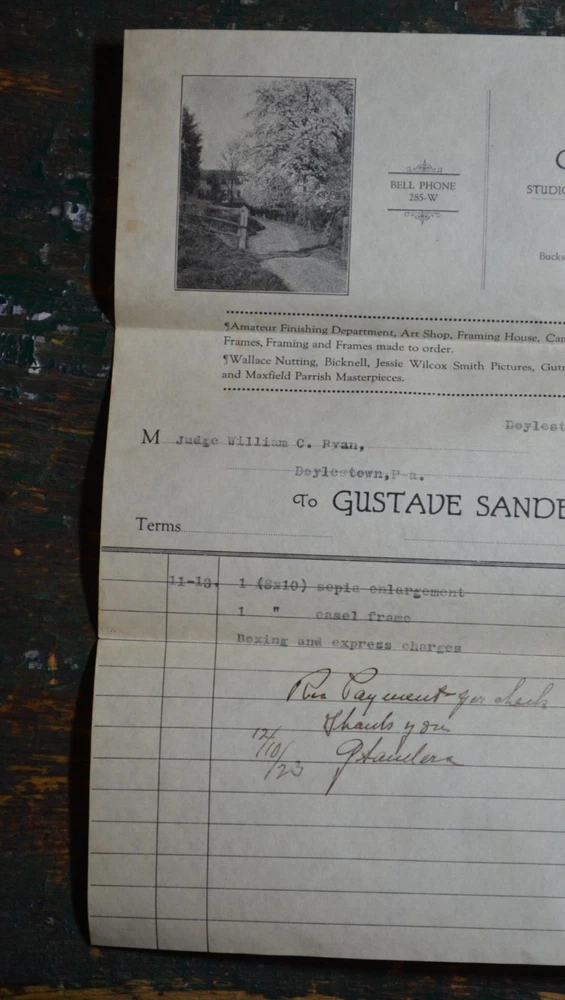 BELL PHONE
285-W
STUDIO
Bucks
¶Amateur Finishing Department, Art Shop, Framing House, Cam
Frames, Framing and Frames made to order.
¶Wallace Nutting, Bicknell, Jessie Wilcox Smith Pictures, Gut
and Maxfield Parrish Masterpieces.
Doylest
M Judge William C. Ryan,
Doylestown,P a.
To GUSTAVE SANDE
Terms
11-13. 1 (8x10) sepia enlargement
1 " easel frame
Boxing and express charges
Payment your check
Thank you
12/10/23 GSanders